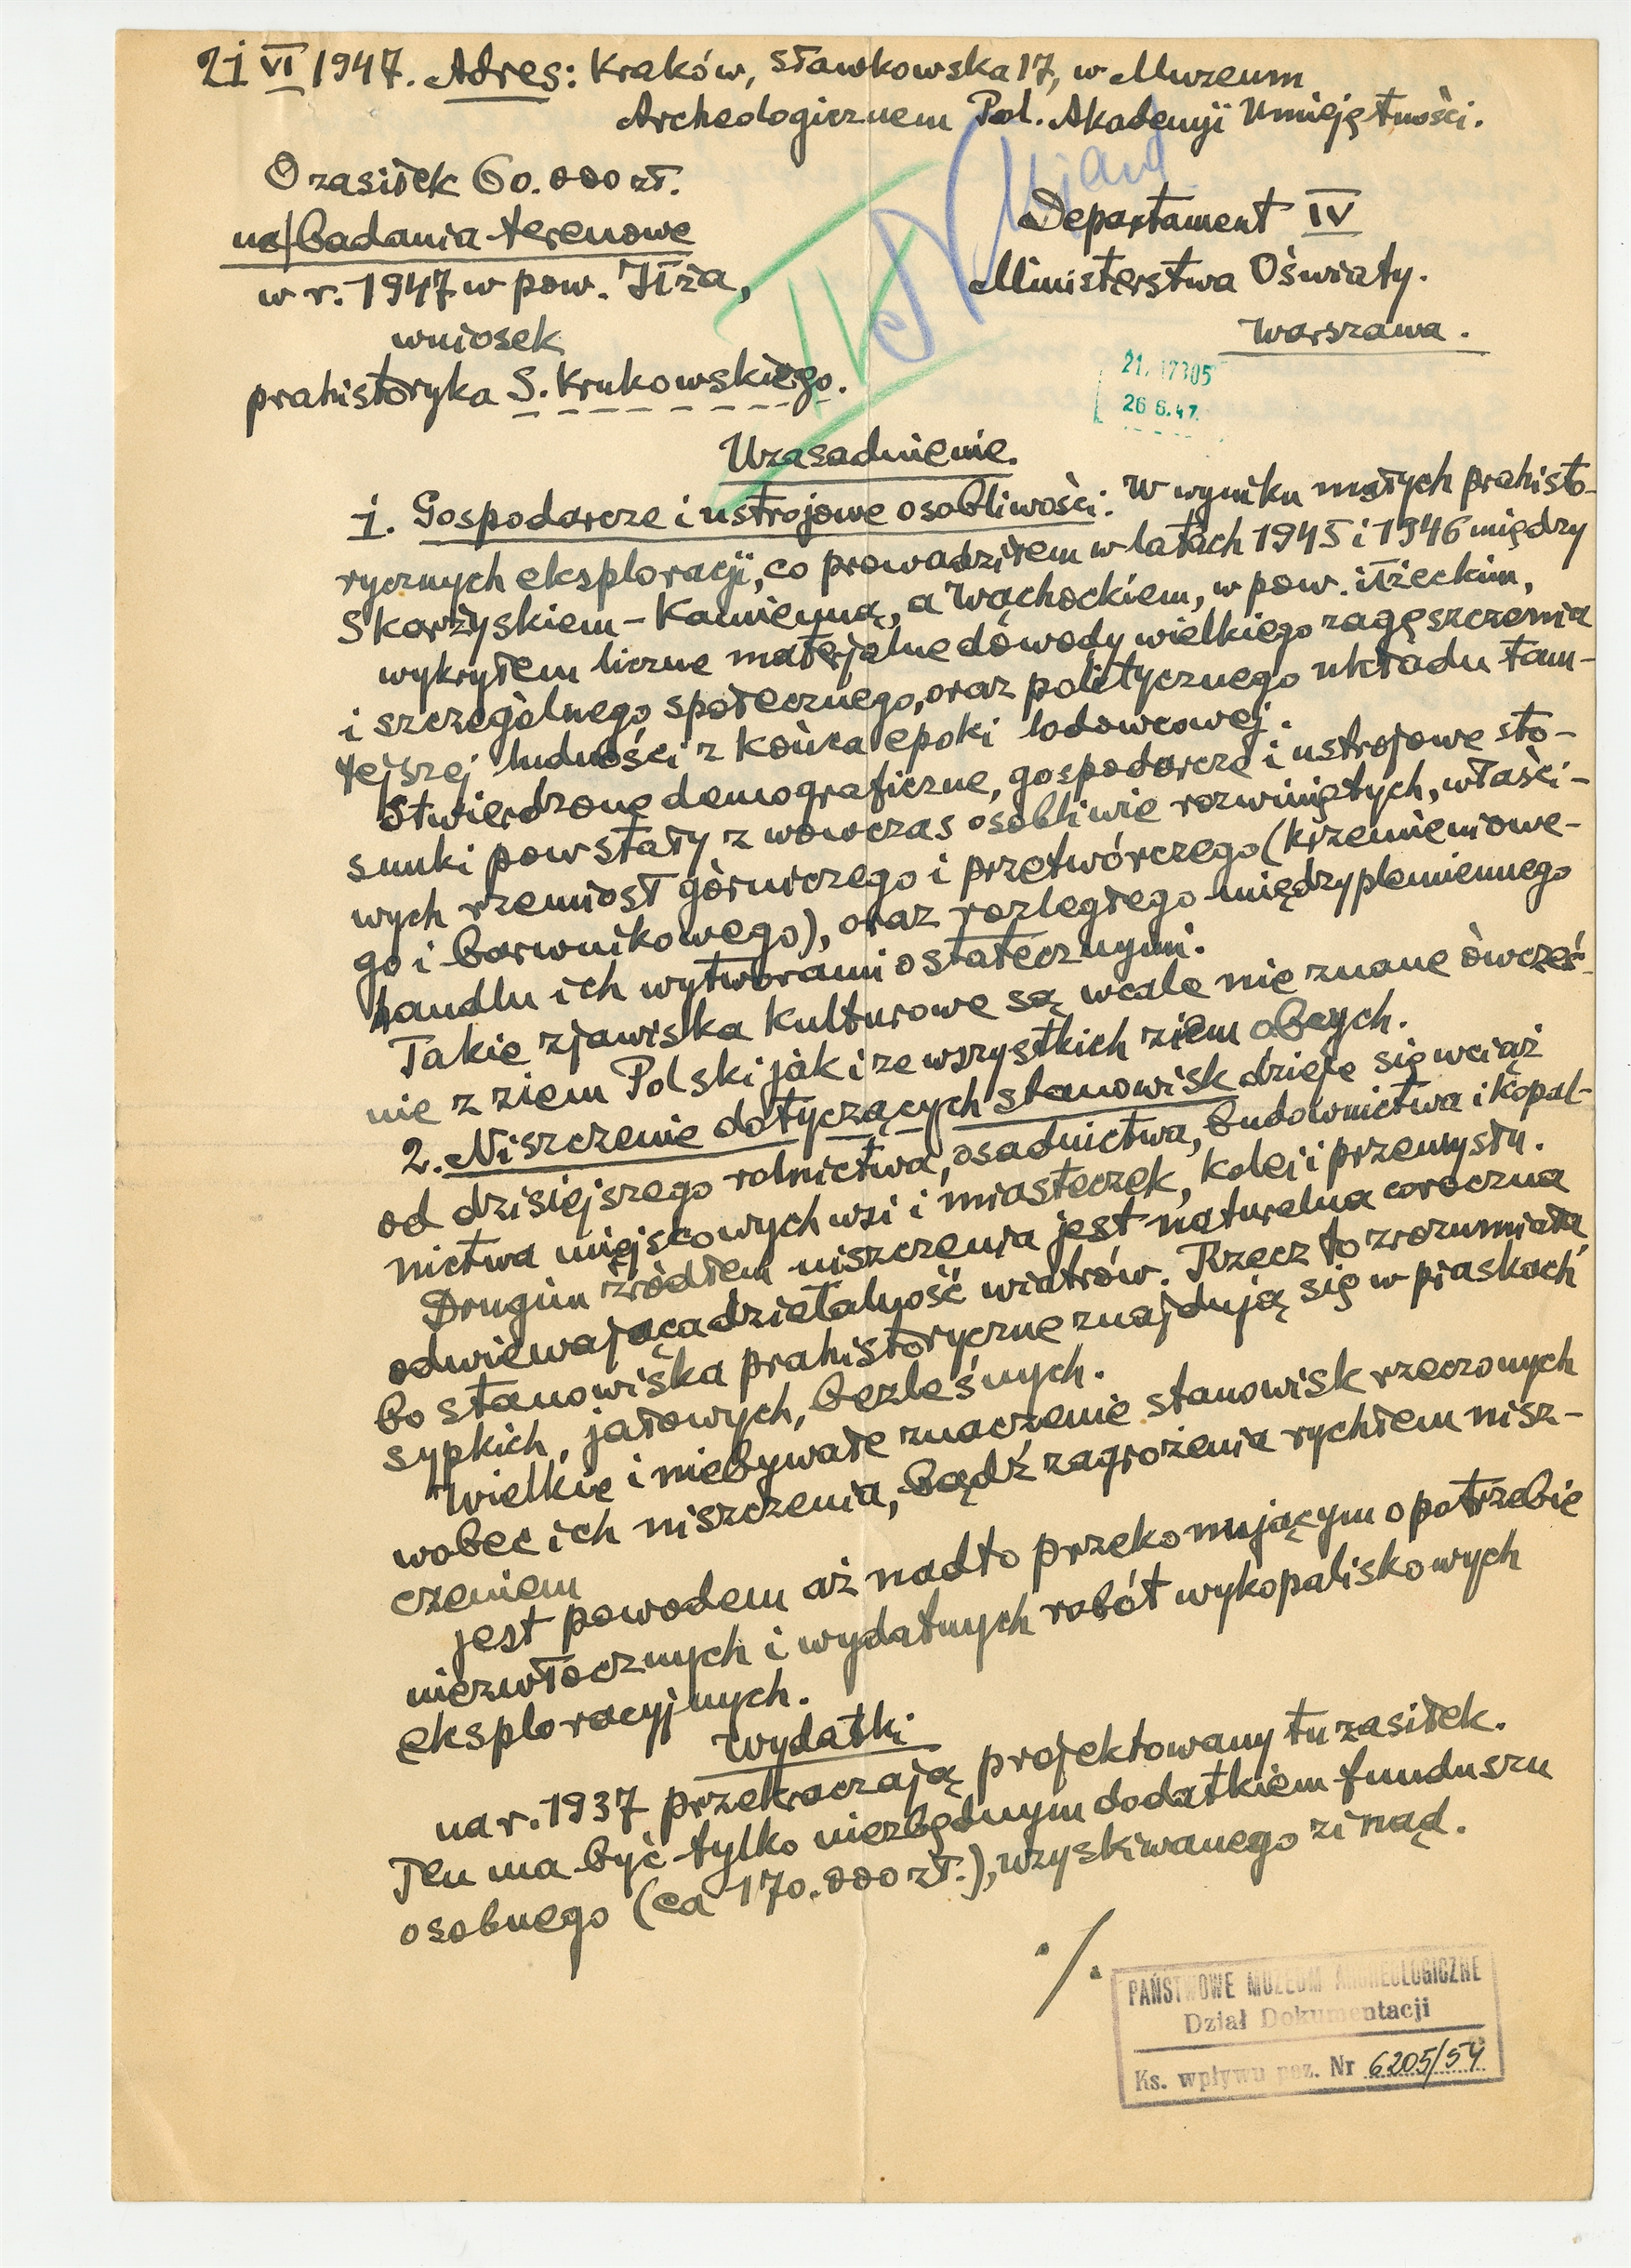 21 VI 1947. Adres: Kraków, Sławkowska 17, w Muzeum
Archeologicznem Pol. Akademji Umiejętności.
O zasiłek 60.000 zł.
na badania terenowe
w r. 1947 w pow. Iłża,
wniosek
prahistoryka S. Krukowskiego.
Departament IV
Ministerstwa Oświaty.
Warszawa.
IV
21. 17305
26 6.47
Uzasadnienie.
1. Gospodarcze i ustrojowe osobliwości. W wyniku małych prahisto-
rycznych eksploracji, co prowadziłem w latach 1945 i 1946 między
Skarżyskiem-Kamienną, a Wąchockiem, w pow. iłżeckim,
wykryłem liczne materjalne dowody wielkiego zagęszczenia
i szczególnego społecznego, oraz politycznego układu tam-
tejszej ludności z końca epoki lodowcowej.
Stwierdzone demograficzne, gospodarcze i ustrojowe sto-
sunki powstały z wówczas osobliwie rozwiniętych, właści-
wych rzemiosł górniczego i przetwórczego (krzemieniowe-
go i barwnikowego), oraz rozległego międzyplemiennego
handlu ich wytworami ostatecznymi.
Takie zjawiska kulturowe są wcale nie znane ówcześ-
nie z ziem Polski jak i ze wszystkich ziem obcych.
2. Niszczenie dotyczących stanowisk dzieje się wciąż
od dzisiejszego rolnictwa, osadnictwa, budownictwa i kopal-
nictwa miejscowych wsi i miasteczek, kolei i przemysłu.
Drugim źródłem niszczenia jest naturalna coroczna
odwiewająca działalność wiatrów. Rzecz to zrozumiała
bo stanowiska prahistoryczne znajdują się w piaskach
sypkich, jałowych, bezleśnych.
Wielkie i niebywałe znaczenie stanowisk rzeczonych
wobec ich niszczenia, bądź zagrożenia rychłem nisz-
czeniem
jest powodem aż nadto przekonującym o potrzebie
niezwłocznych i wydatnych robót wykopaliskowych
eksploracyjnych.
Wydatki
na r. 1937 przekraczają projektowany tu zasiłek.
Ten ma być tylko niezbędnym dodatkiem funduszu
osobnego (ca 170.000 zł.), uzyskiwanego zinąd.
./.
PAŃSTWOWE MUZEUM ARCHEOLOGICZNE
Dział Dokumentacji
Ks. wpływu poz. Nr 6205/54